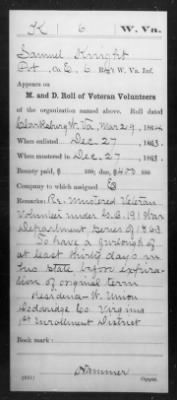 K 6 W. Va.
Samuel Knight
Pvt., Co. E, 6 Reg't W. Va. Inf.
Appears on
M. and D. Roll of Veteran Volunteers
of the organization named above. Roll dated
Clarksburg W. Va., Mar 29, 1864
When enlisted Dec. 27, 1863.
When mustered in Dec. 27, 1863.
Bounty paid, $ 100; due, $ 100
Company to which assigned E
Remarks: Re. Mustered Veteran
Volunteer under G.O. 191 War
Department Series of 1863.
To have a furlough of
at least thirty days in
his State before expira-
tion of original term
Residence - W. Union
Doddridge Co. Virginia
1st Enrollment District
Book mark:
Copyist.